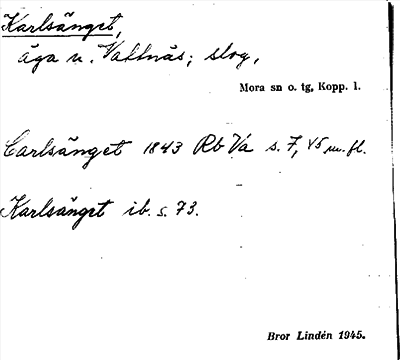 Karlsänget,
äga u. Vattnäs; slog,
Mora sn o. tg, Kopp. l.
Carlsänget 1843 Rb Vä s. 7, 45 m. fl.
Karlsänget ib. s. 73.
Bror Lindén 1945.